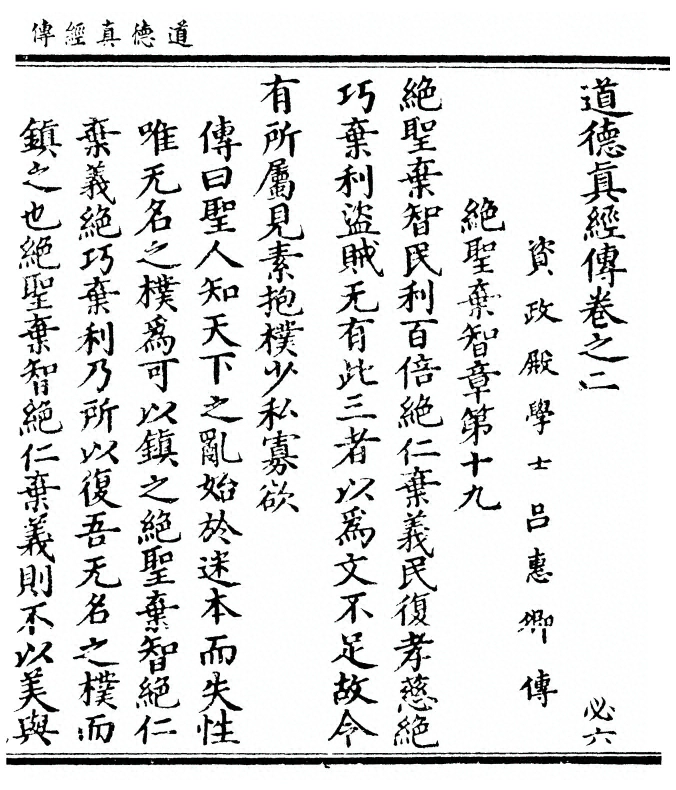 道德真經傳
道德眞經傳卷之二
必六
資政殿學士呂惠卿傳
絶聖棄智章第十九
絶聖棄智民利百倍絶仁棄義民復孝慈絶
巧棄利盜賊无有此三者以爲文不足故令
有所屬見素抱樸少私寡欲
傳曰聖人知天下之亂始於迷本而失性
唯无名之樸爲可以鎮之絶聖棄智絶仁
棄義絶巧棄利乃所以復吾无名之樸而
鎮之也絶聖棄智絶仁棄義則不以美與